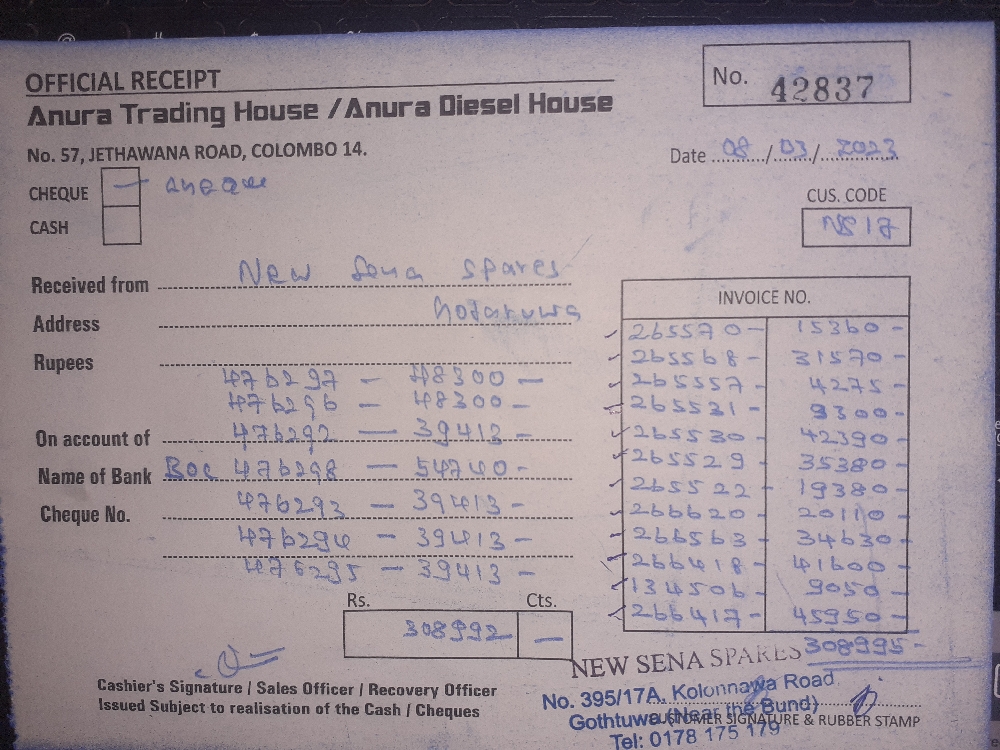 OFFICIAL RECEIPT
Anura Trading House / Anura Diesel House
No. 42837
No. 57, JETHAWANA ROAD, COLOMBO 14.
Date 08/03/2023
CHEQUE — cheque
CASH
CUS. CODE
NS 17
Received from New Sena Spares
Address
Rupees
476297 — 48300 —
476296 — 48300 —
On account of 476292 — 39413 —
Name of Bank BOC 476298 — 54740 —
Cheque No. 476293 — 39413 —
476294 — 39413 —
476295 — 39413 —
INVOICE NO.
✓ 265570 — 15360 —
✓ 265568 — 31570 —
✓ 265557 — 4275 —
✓ 265531 — 9300 —
✓ 265530 — 42390 —
✓ 265529 — 35380 —
✓ 265522 — 19380 —
✓ 266620 — 20110 —
✓ 266563 — 34630 —
✓ 266418 — 41600 —
✓ 134506 — 9050 —
✓ 266417 — 45950 —
308995 —
Rs. Cts.
308992 —
Cashier's Signature / Sales Officer / Recovery Officer
Issued Subject to realisation of the Cash / Cheques
NEW SENA SPARES
No. 395/17A, Kolonnawa Road
Gothtuwa (Near the Bund)
CUSTOMER SIGNATURE & RUBBER STAMP
Tel: 0178 175 179